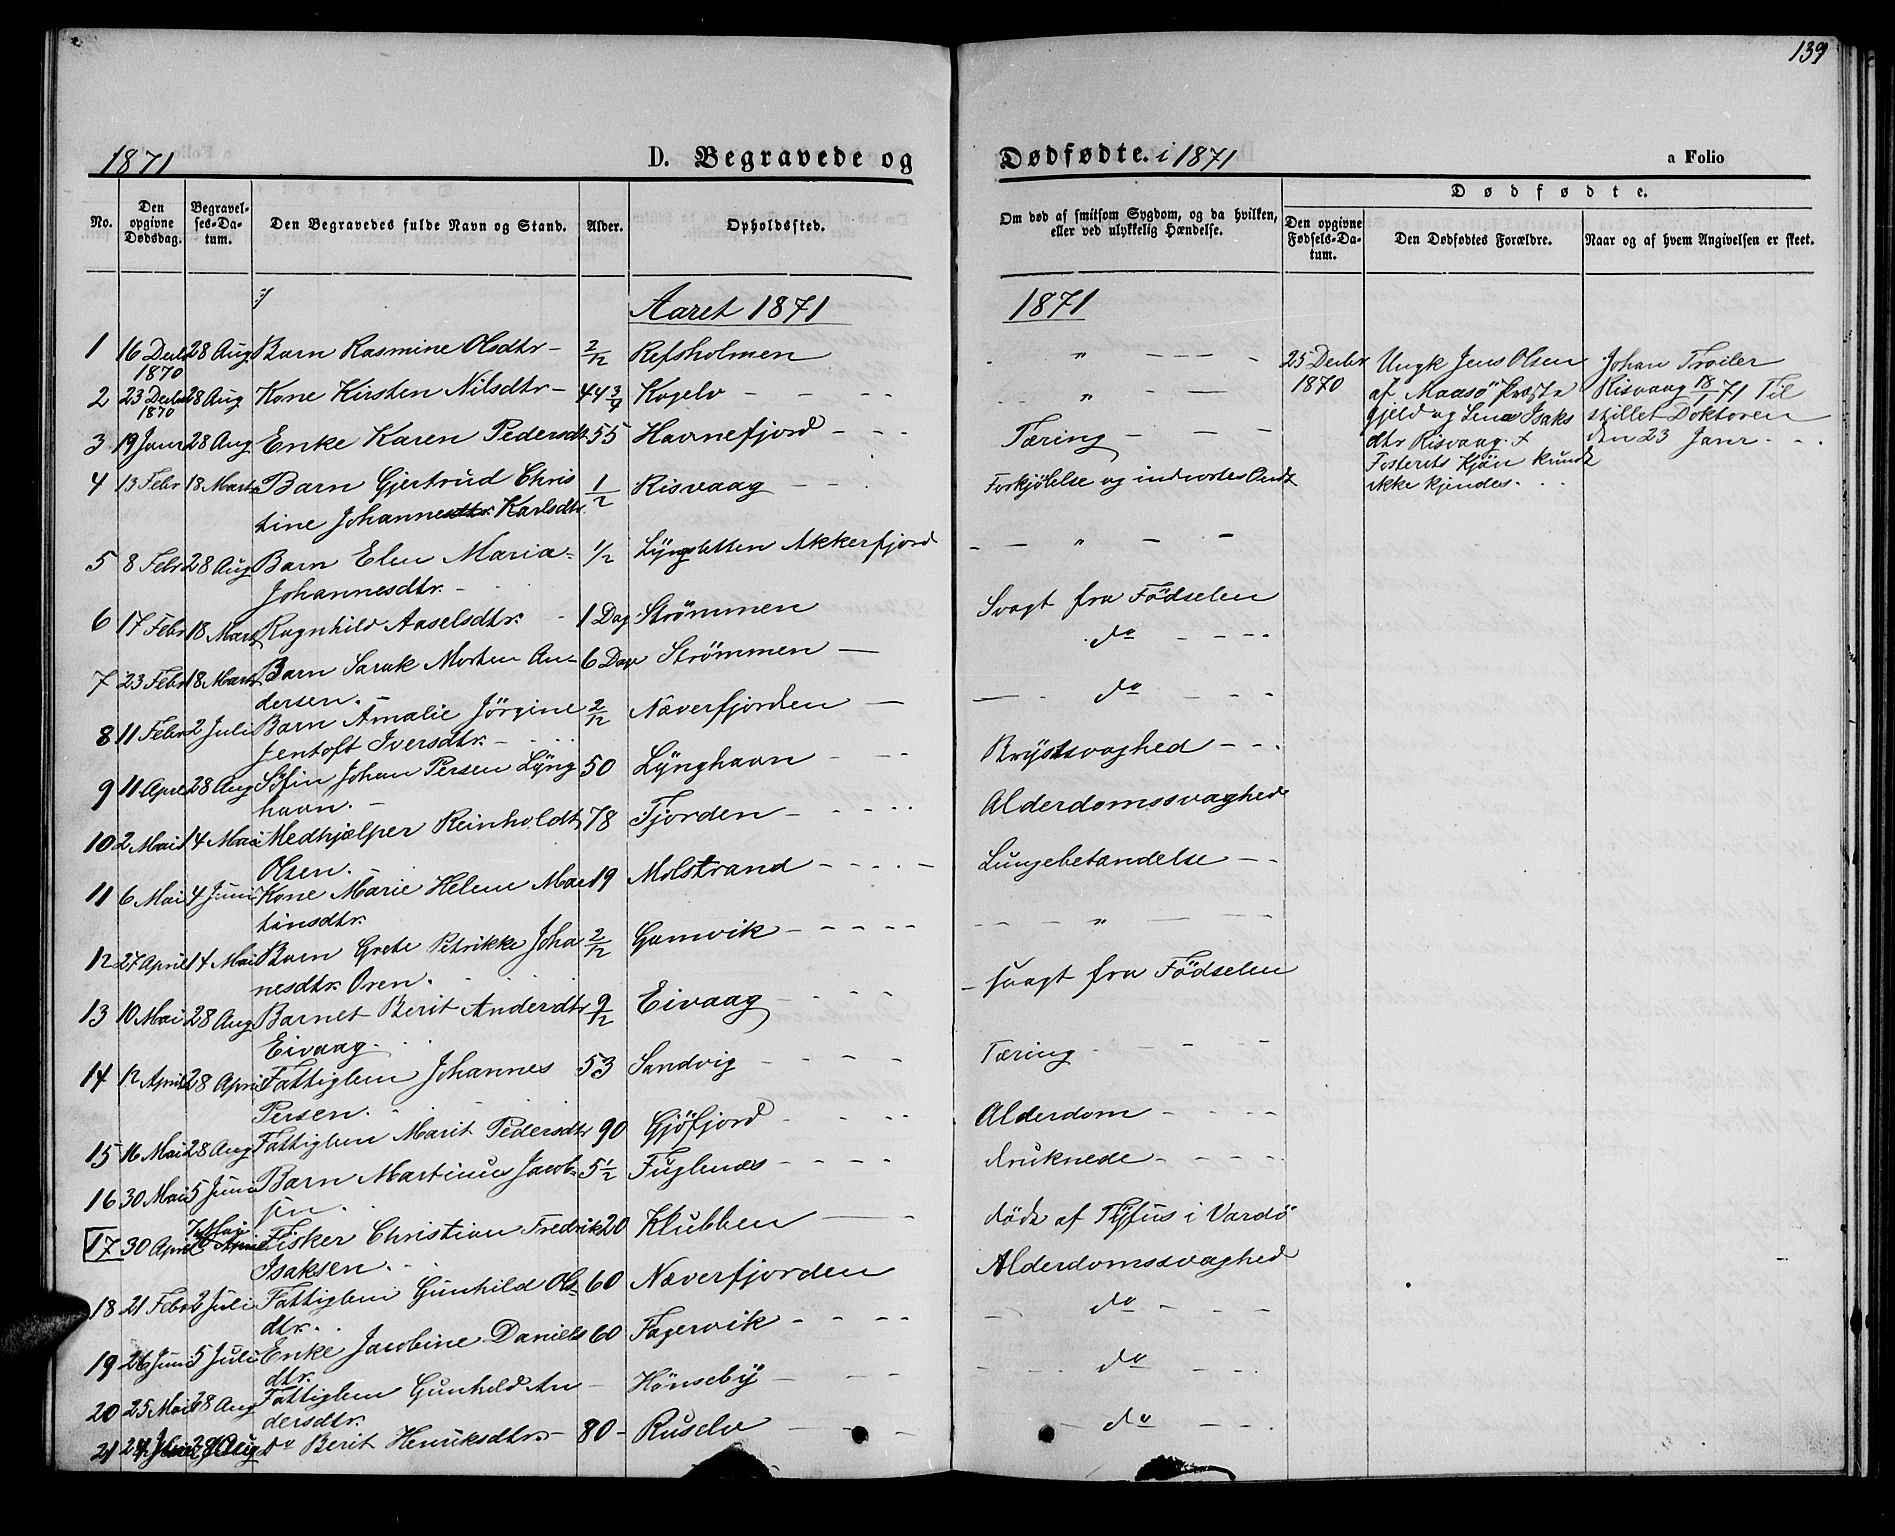 139
1871 D. Begravede og Dødfødte. i 1871 a Folio
No. Den opgivne Dødsdag. Begravelses-Datum. Den Begravedes fulde Navn og Stand. Alder. Opholdssted. Om død af smitsom Sygdom, og da hvilken, eller ved ulykkelig Hændelse. Dødfødte.
Den opgivne Fødsels-Datum. Den Dødfødtes Forældre. Naar og af hvem Angivelsen er skeet.
Aaret 1871 1871
1 16 Decbr 1870 28 Aug Barn Rasmine Olsdtr - 2/12 Refsholmen " - - -
2 23 Decbr 1870 28 Aug Kone Kirsten Nilsdtr - 44 3/4 Kogelv - - - "
3 19 Janr 28 Aug Enke Karen Pedersdt 55 Havnefjord - - - Tæring - - -
4 13 Febr 18 Marts Barn Gjertrud Chris 1/2 Risvaag - - Forkjölelse og indvortes Ondt
tine Johannesdtr. Karlsdtr.
5 8 Febr 28 Aug Barn Elen Maria 1/2 Lÿngsletten Akkerfjord - - " - -
Johannesdtr. -
6 17 Febr 18 Marts Ragnhild Aaselsdtr. 1 Dag Strömmen Svagt fra Födselen
7 23 Febr 18 Marts Barn Sarak Morten An- 6 Dage Strömmen - do - - -
dersen.
8 11 Febr 2 Juli Barn Amalie Jörgine 2/12 Næverfjorden - do - - -
Jentoft Iversdtr. -
9 11 April 28 Aug Söfin Johan Persen Lÿng 50 Lÿnghavn - - - Brÿstsvaghed - - -
havn. -
10 2 Mai 14 Mai Medhjælper Reinholdt 78 Fjorden - - - - Alderdomssvaghed
Olsen.
11 6 Mai 4 Juni Kone Marie Helene Mar 19 Molstrand - - - - Lungebetændelse - -
tinsdtr.
12 27 April 14 Mai Barn Grete Petrikke Joha 2/12 Gamvik - - - - - - - - " - -
nesdtr. Oren.
13 10 Mai 28 Aug Barnet Berit Anderdtr 9/12 Eivaag - - - - - svagt fra Födselen
Eivaag.
14 12 April 28 April Fattiglem Johannes 53 Sandvig - - - - Tæring - - - -
Persen.
15 16 Mai 28 Aug Fattiglem Marit Pedersdtr 90 Gjöfjord - - - Alderdom - - - -
16 30 Mai 5 Juni Barn Martinus Jacob- 5 1/2 Fuglenæs - - - - druknede - - - -
sen.
17 30 April 7 Mai Fisker Christian Fredrik 20 Klubben - - död af Tÿfus i Vardö
Isaksen.
18 21 Febr 2 Juli Fattiglem Gunhild Ols 60 Næverfjorden Alderdomssvaghed
dtr.
19 26 Juni 5 Juli Enke Jacobine Daniels 60 Fagervik - - - - do - - -
dtr.
20 25 Mai 28 Aug Fattiglem Gunhild An - Hönsebÿ - - - do - -
dersdtr.
21 28 Aug do Berit Henriksdtr. - 80 - Ruselv - - - do - - -
25 Decbr 1870
Ungk Jens Olsen
af Maasö Præste
gjeld og Lena Isaks
dtr Risvaag.
Fosterets Kjön kunde
ikke kjendes.
Johan Troiler
Risvaag 18/1 71 Til
stillet Doktoren
den 23 Janr. - .